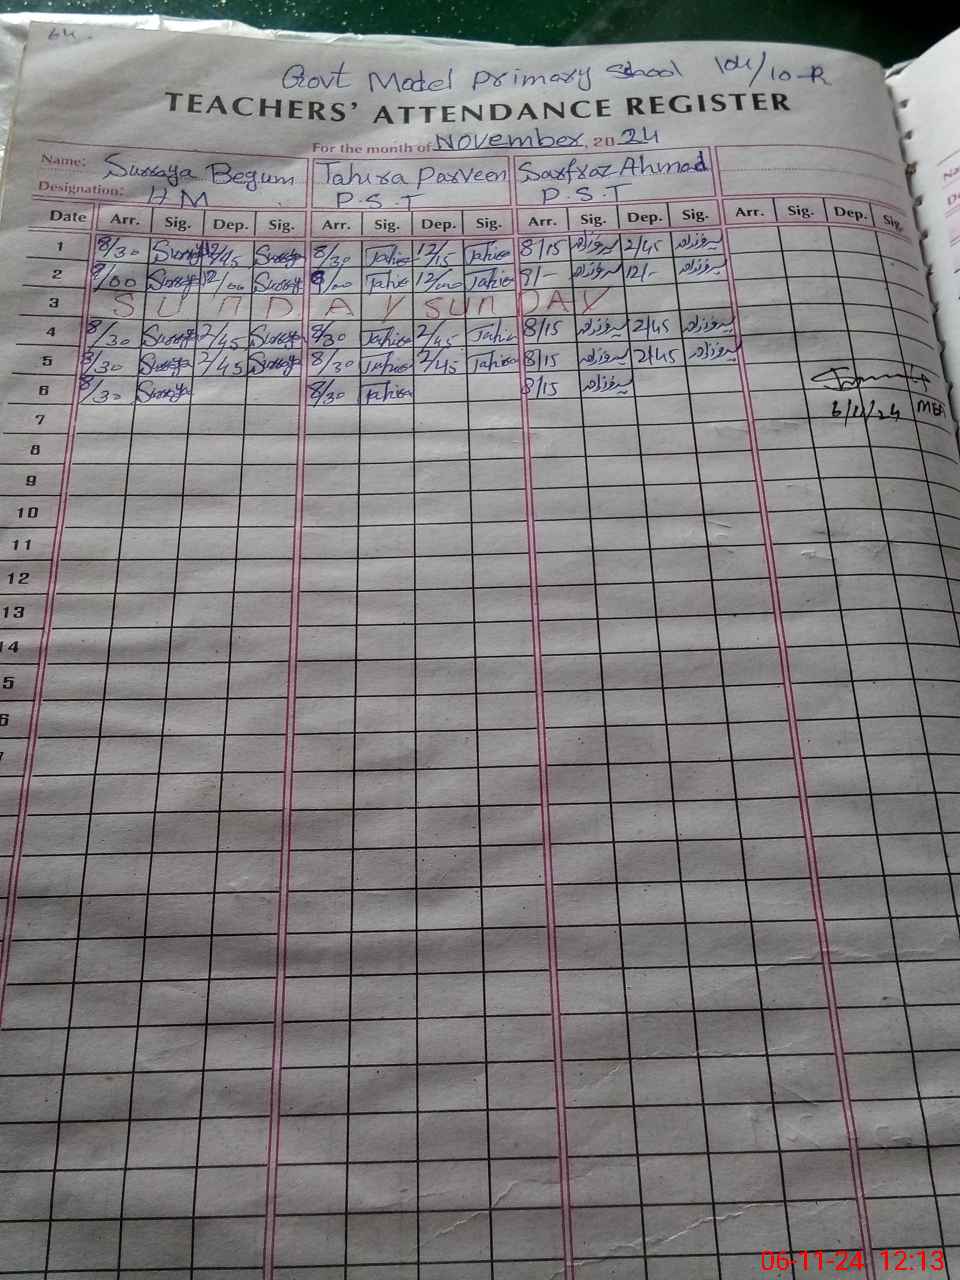 64.
Govt Model Primary School 104/10-R
TEACHERS' ATTENDANCE REGISTER
For the month of November, 2024
Name: Surraya Begum Tahira Parveen Sarfraz Ahmad
Designation: H M P.S.T P.S.T
Date Arr. Sig. Dep. Sig. Arr. Sig. Dep. Sig. Arr. Sig. Dep. Sig. Arr. Sig. Dep. Sig.
1 8/30 Surraya 12/15 Surraya 8/30 Tahira 12/15 Tahira 8/15 2/45
2 9/00 Surraya 12/00 Surraya 9/00 Tahira 12/00 Tahira 9/- 12/-
3 SUNDAY SUNDAY
4 8/30 Surraya 2/45 Surraya 8/30 Tahira 2/45 Tahira 8/15 2/45
5 8/30 Surraya 2/45 Surraya 8/30 Tahira 2/45 Tahira 8/15 2/45
6 8/30 Surraya 8/30 Tahira 8/15
7 6/11/24 MEA
8
9
10
11
12
13
14
5
6
7
06-11-24 12:13